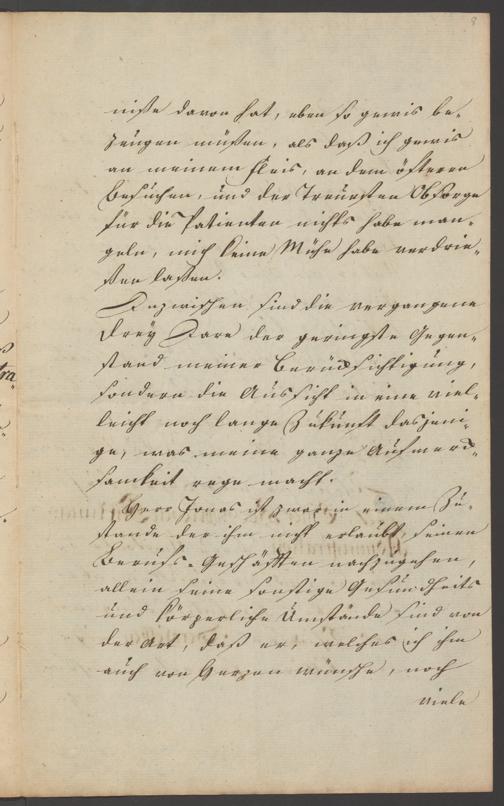 8
nisse davon hat, eben so gewis be-
zeugen müssen, als daß ich gewis
an meinem Fleis, an dem öftern
besuchen, und der Treusten Obsorge
für die Patienten nichts habe man-
geln, mich keine Mühe habe verdrie-
ssen lassen.
Inzwischen sind die vergangene
drey Jare der geringste Gegen-
stand meiner Berücksichtigung,
sondern die Aussicht in eine viel-
leicht noch lange Zukunft dasjeni-
ge, was meine ganze Aufmerk-
samkeit rege macht.
Herr Jonas ist zwar in einem Zu-
stande der ihm nicht erlaubt, seinen
Berufs-Geschäften nachzugehen,
allein seine sonstige Gesundheits
und körperliche Umstände sind von
der Art, daß er, welches ich ihm
auch von Herzen wünsche, noch
viele